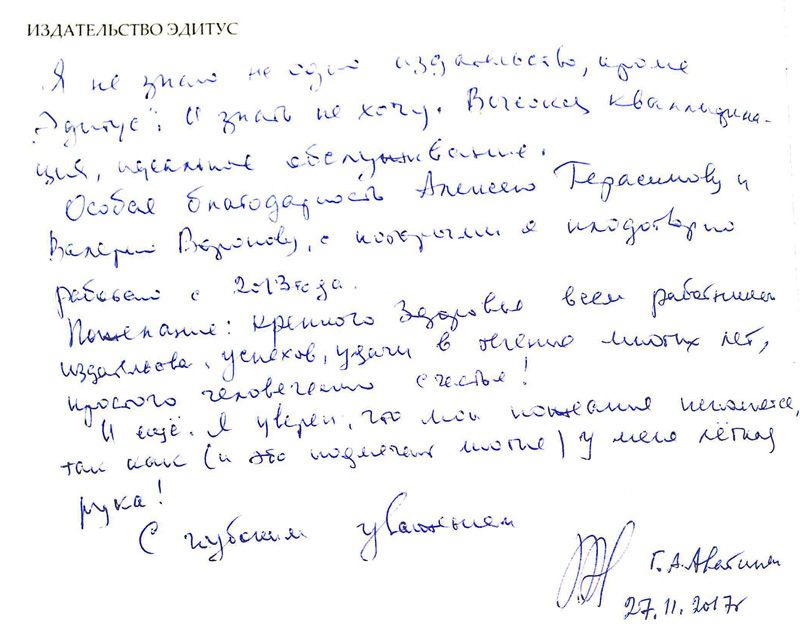 ИЗДАТЕЛЬСТВО ЭДИТУС
Я не знаю не одно издательство, кроме
"Эдитус". И знать не хочу. Высокая квалифика-
ция, идеальное обслуживание.
Особая благодарность Алексею Герасимову и
Валерию Воронову, с которыми я плодотворно
работаю с 2013 года.
Пожелание: крепкого здоровья всем работникам
издательства, успехов, удачи в течение многих лет,
простого человеческого счастья!
И ещё. Я уверен, что мои пожелания исполнятся,
так как (и это подмечают многие) у меня лёгкая
рука!
С глубоким уважением
Г.А.
27.11.2017г